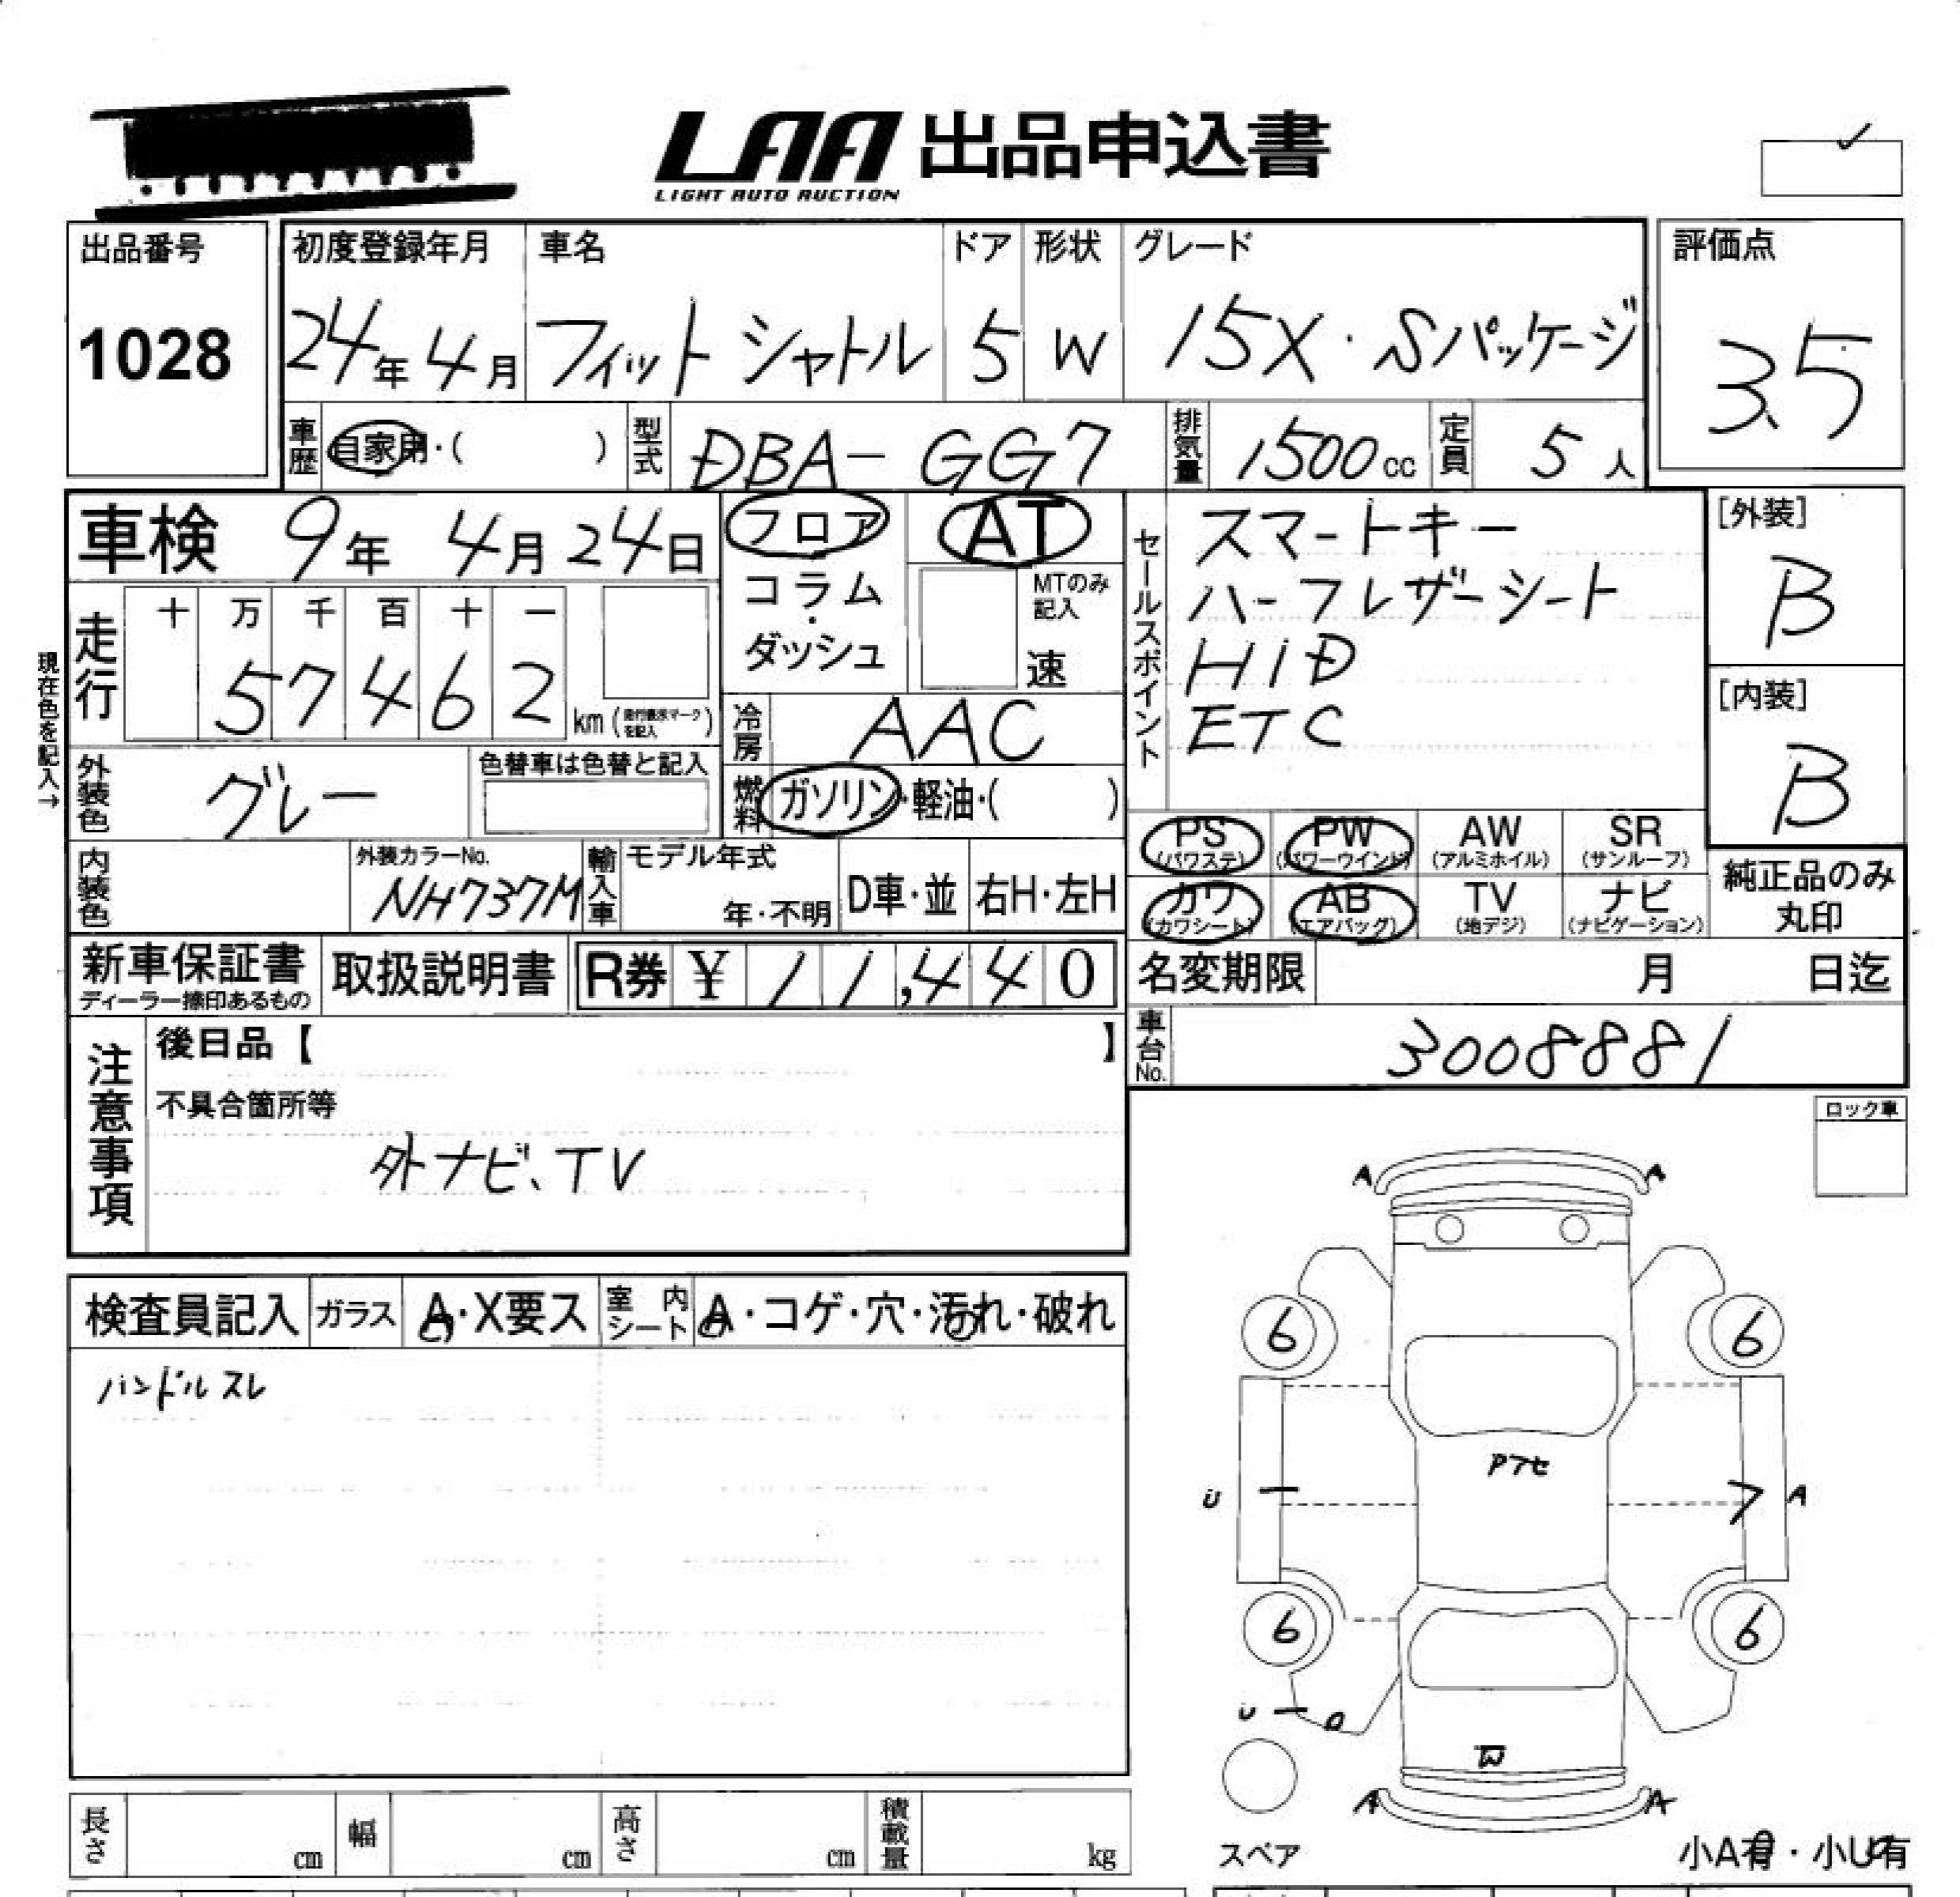 LAA 出品申込書
LIGHT AUTO AUCTION
出品番号
1028
初度登録年月 車名 ドア 形状 グレード 評価点
24年 4月 フィット シャトル 5 W 15X・Sパッケージ
3.5
車歴 自家用・( ) 型式 DBA- GG7 排気量 1500cc 定員 5人
車検 9年 4月 24日
フロア
コラム・ダッシュ
AT
MTのみ記入
速
セールスポイント
スマートキー
ハーフレザーシート
HID
ETC
[外装]
B
[内装]
B
現在色を記入→
走行 十 万 千 百 十 一
5 7 4 6 2 km(走行表示マークを記入)
冷房 AAC
外装色 グレー 色替車は色替と記入
燃料 ガソリン・軽油・( )
PS (パワステ) PW (パワーウインド) AW (アルミホイル) SR (サンルーフ)
カワ (カワシート) AB (エアバッグ) TV (地デジ) ナビ (ナビゲーション)
純正品のみ丸印
内装色 外装カラーNo. NH737M 輸入車 モデル年式 年・不明 D車・並 右H・左H
新車保証書 ディーラー捺印あるもの 取扱説明書 R券 ¥ 11,440
名変期限 月 日迄
車台No. 3008881
注意事項
後日品【 】
不具合箇所等
外ナビ、TV
ロック車
検査員記入 ガラス A・X要ス 室内シート A・コゲ・穴・汚れ・破れ
ハンドルスレ
A A
6 6
Pアセ
U A
6 6
U
W
A A
スペア
小A有・小U有
長さ cm 幅 cm 高さ cm 積載量 kg